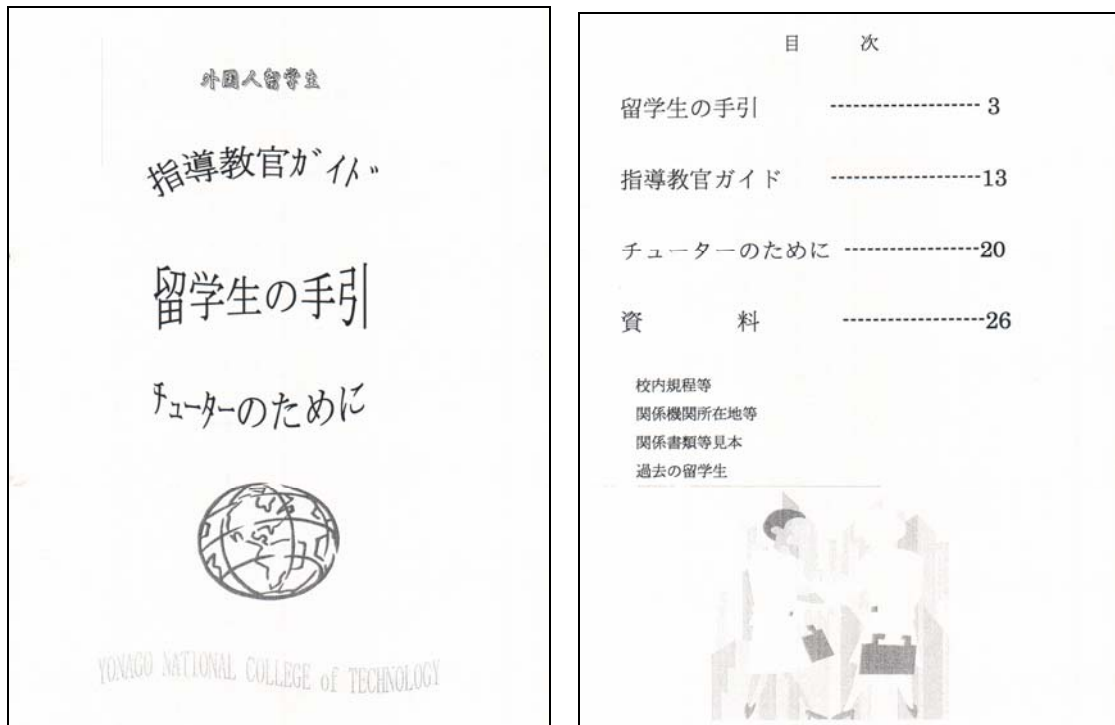 外国人留学生
指導教官ガイド
留学生の手引
チューターのために
YONAGO NATIONAL COLLEGE of TECHNOLOGY
目 次
留学生の手引 ------------------- 3
指導教官ガイド -------------------13
チューターのために -----------------20
資 料 ------------------26
校内規程等
関係機関所在地等
関係書類等見本
過去の留学生